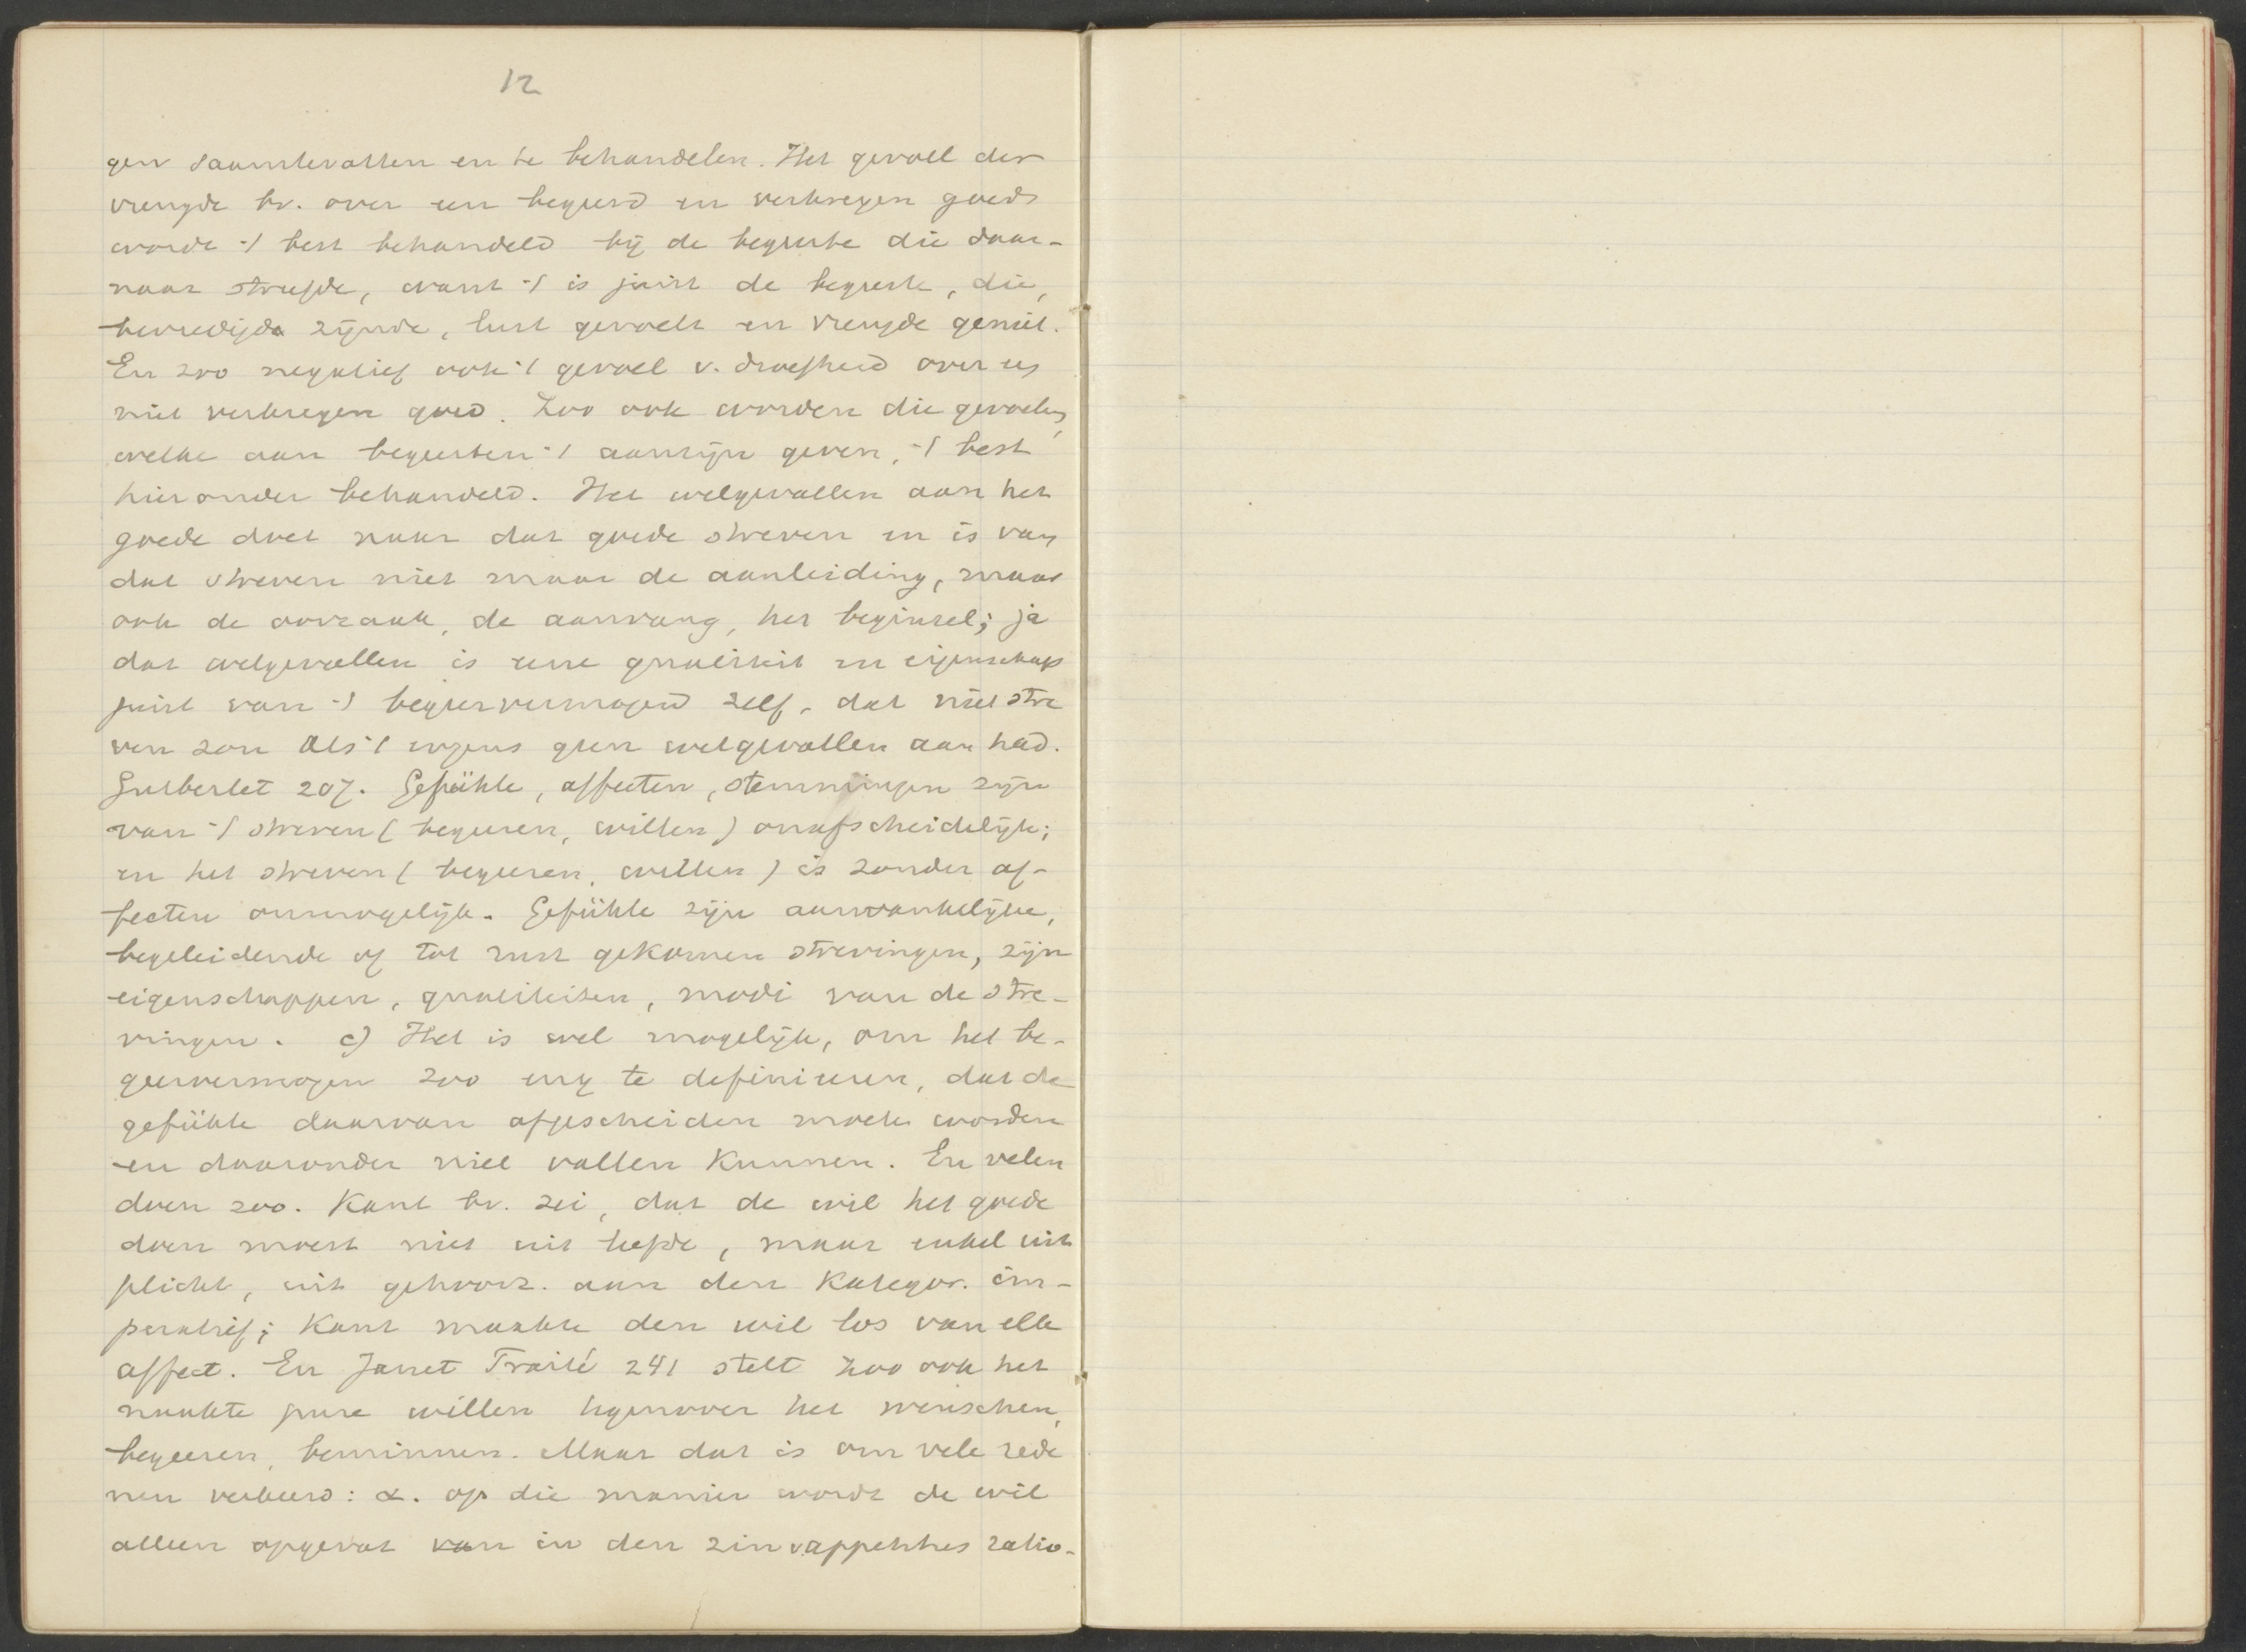 12
gen saamtevatten en te behandelen. Het gevoel der
vreugde bv. over een begeerd en verkregen goed
worde 't best behandeld bij de begeerte die daar-
naar streefde, want 't is juist de begeerte, die,
bevredigd zijnde, lust gevoelt en vreugde geniet.
En zoo negatief ook 't gevoel v. droefheid over een
niet verkregen goed. Zoo ook worden die gevoelens,
welke aan begeerten 't aanzijn geven, 't best
hieronder behandeld. Het welgevallen aan het
goede doet naar dat goede streven en is van
dat streven niet maar de aanleiding, maar
ook de oorzaak, de aanvang, het beginsel; ja
dat welgevallen is eene qualiteit en eigenschap
juist van 't begeervermogen zelf, dat niet stre
ven zou als 't ergens geen welgevallen aan had.
Gutberlet 207. Gefühle, affecten, stemmingen zijn
van 't streven (begeeren, willen) onafscheidelijk;
en het streven (begeeren, willen) is zonder af-
fecten onmogelijk. Gefühle zijn aanvankelijke,
begeleidende of tot rust gekomen strevingen, zijn
eigenschappen, qualiteiten, modi van de stre-
vingen. c) Het is wel mogelijk, om het be-
geervermogen zoo eng te definieeren, dat de
gefühle daarvan afgescheiden moeten worden
en daaronder niet vallen kunnen. En velen
doen zoo. Kant bv. zei, dat de wil het goede
doen moest niet uit liefde, maar enkel uit
plicht, uit gehoorz. aan den Kategor. im-
peratief; Kant maakte den wil los van elk
affect. En Janet Traité 241 stelt zoo ook het
naakte pure willen tegenover het wenschen,
begeeren, beminnen. Maar dat is om vele rede
nen verkeerd: α. op die manier wordt de wil
alleen opgevat van in den zin v. appetitus ratio-